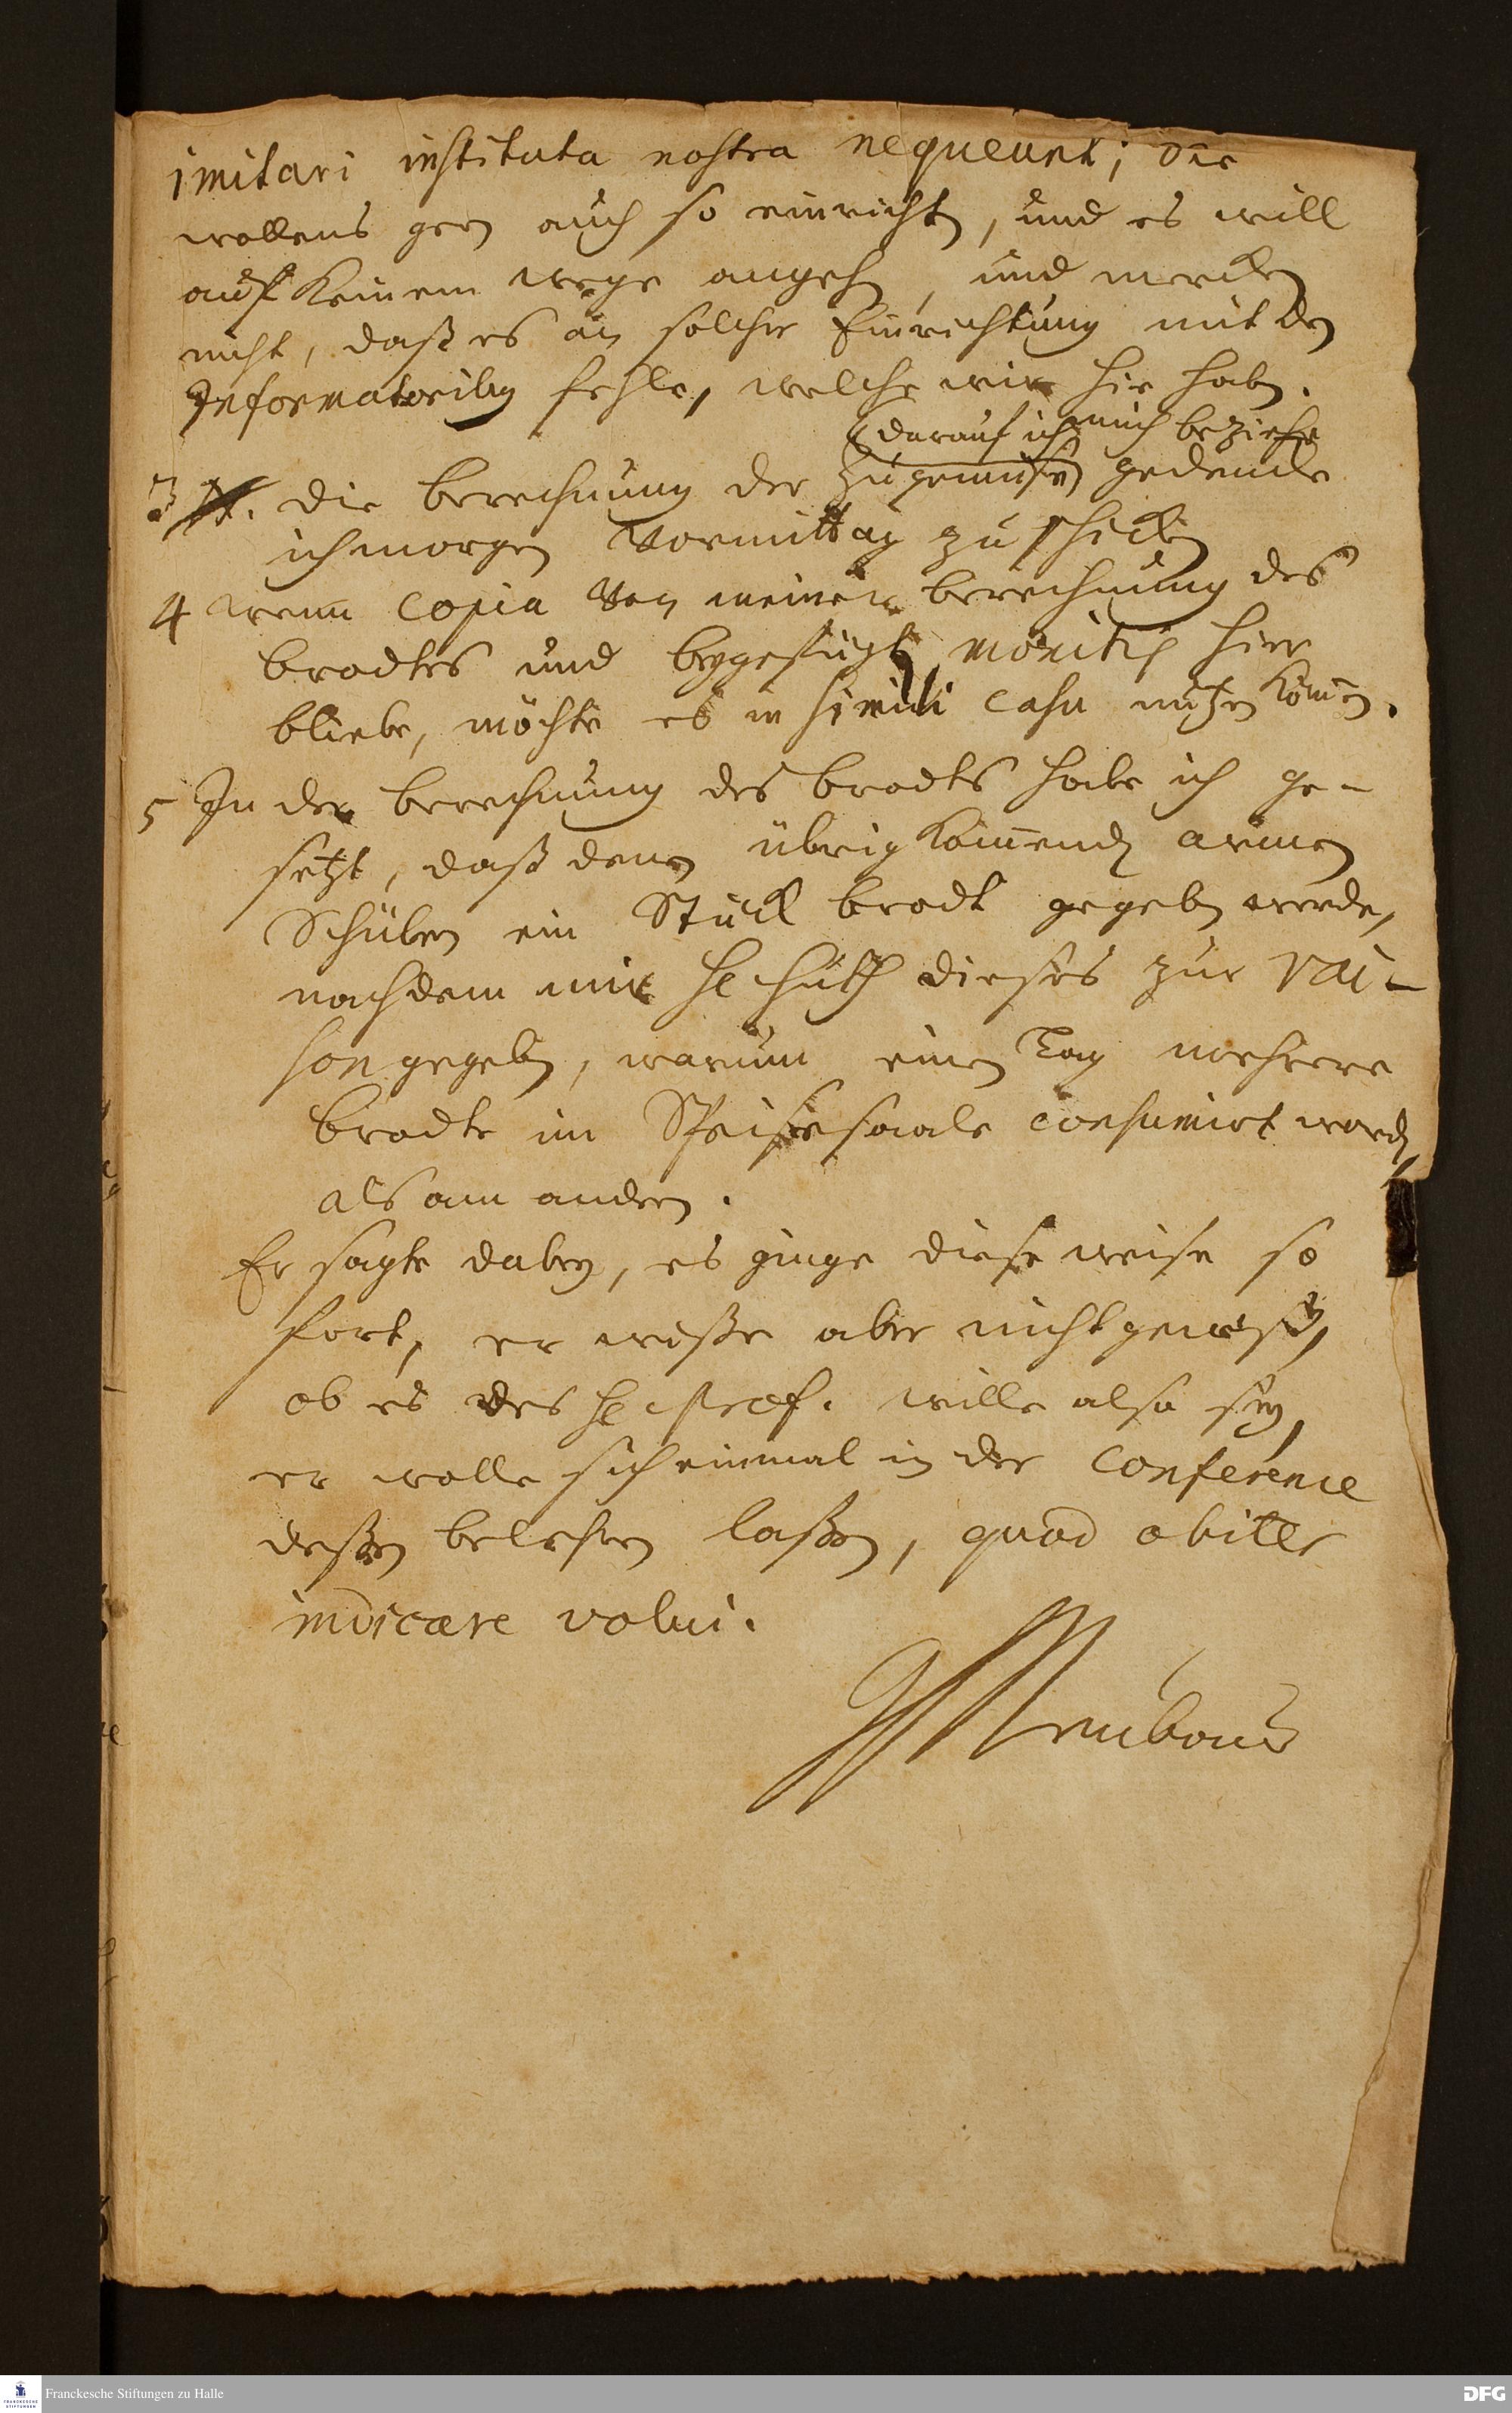 imitari instituta nostra nequeunt; die
wollens gern auch so einrichten, und es will
auf keinem wege angehen, und mercken
nicht, daß es an solcher Einrichtung mit den
Informatoribus fehle, welche wir hie haben.
(darauf ich mich beziehe
3 die berechnung der Zugemüse) gedencke
ich morgen Vormittag zu schicken
4 wenn copia von meiner berechnung des
brodtes und beygefügten monitis hier
bliebe, möchte es in simili casu nutzen können.
5 In der berechnung des brodts habe ich ge-
setzt, daß denen übrig kommenden armen
Schülern ein Stück brodt gegeben werde,
nachdem mir H Huth dieses zur rai-
son gegeben, warum einen Tag mehrere
brodte im Speisesaale consumirt worden,
als am andern.
Er sagte dabey, es ginge diese weise so
fort, er wisse aber nicht gewiß,
ob es des H Prof. wille also sey,
er wolle sich einmal in der conference
deßen belehren laßen, quod obiter
indicare volui.
Neubauer
Franckesche Stiftungen zu Halle
FRANCKESCHE STIFTUNGEN
DFG